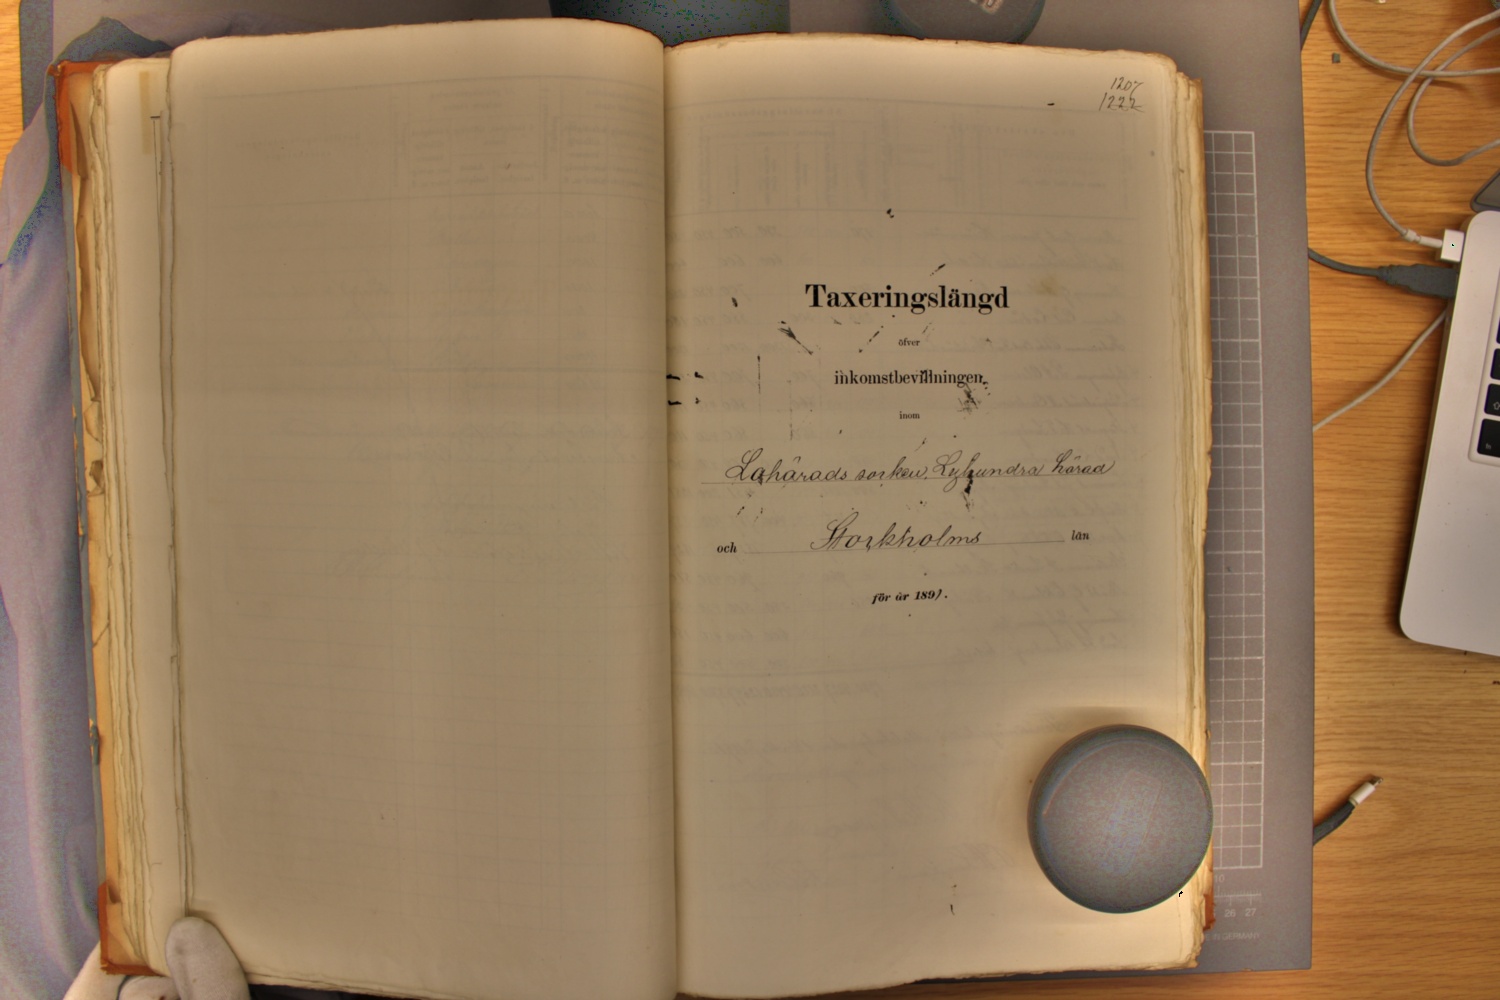 1207
1222
Taxeringslängd
öfver
inkomstbevillningen
inom
Lohärads socken, Lyhundra härad
och Stockholms län
för år 1891.
10
26 27
IN GERMANY